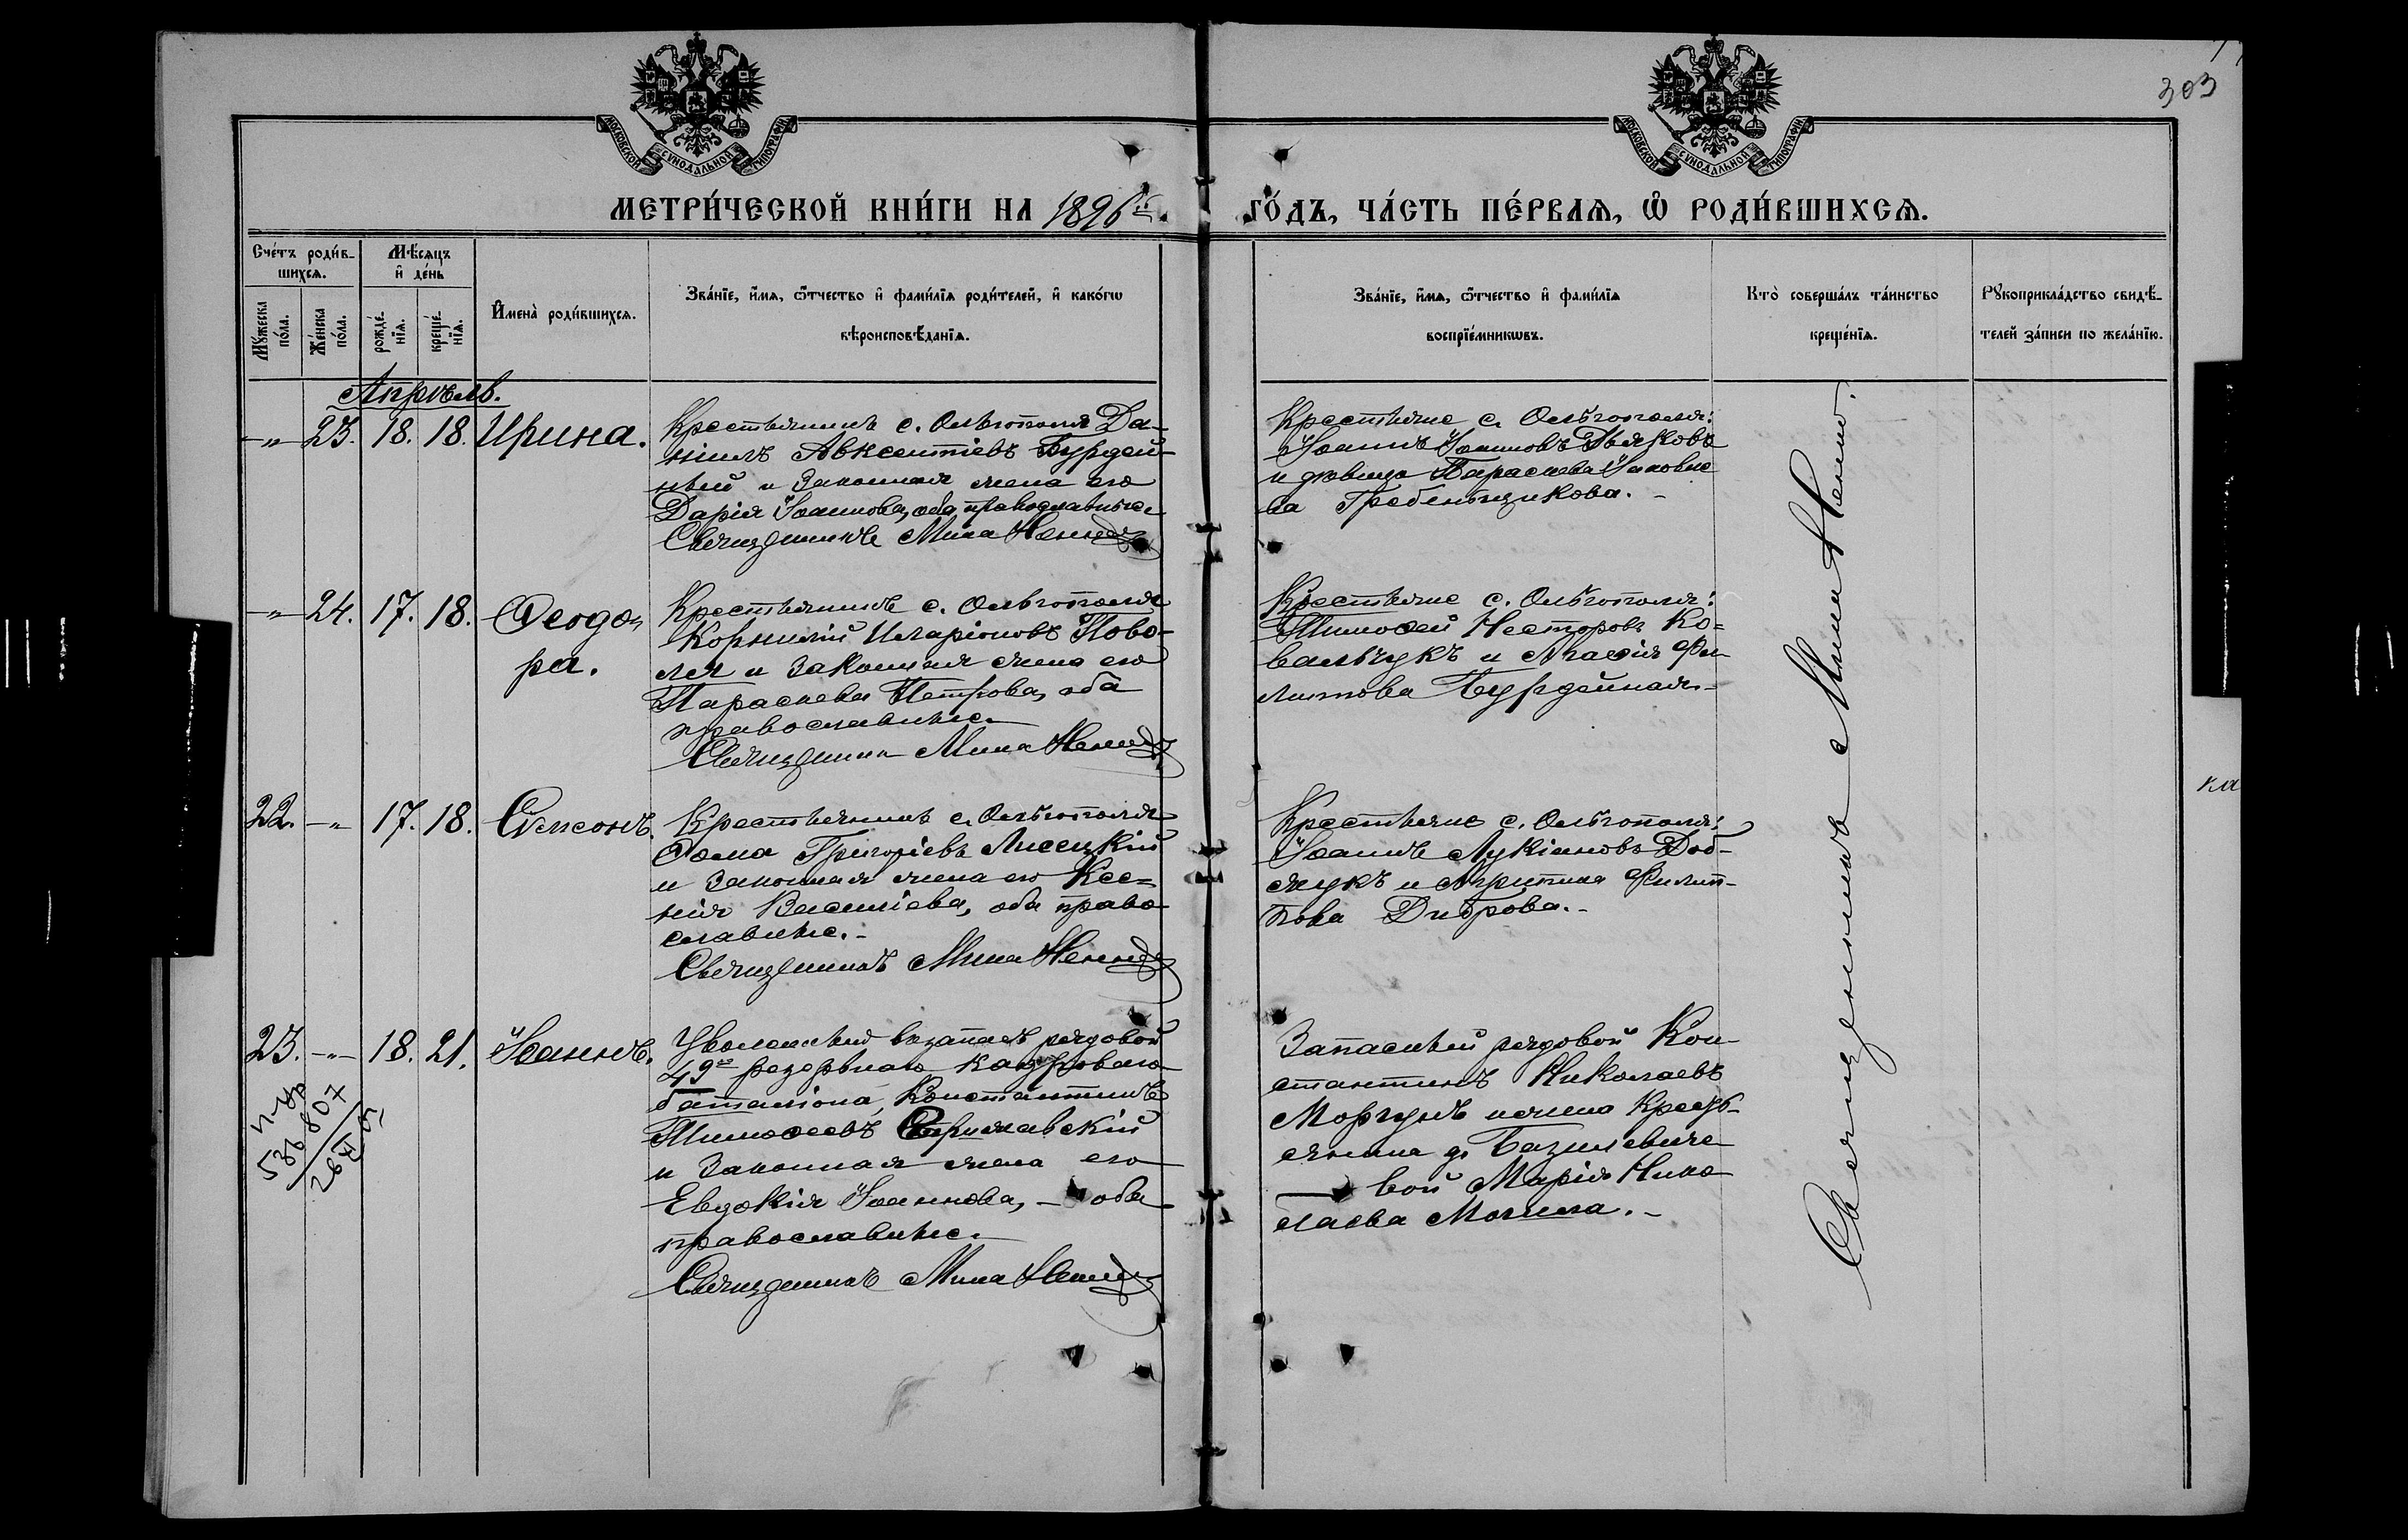 303
МОСКОВСКОЙ СУНОДАЛЬНОЙ ТИПОГРАФИИ
МОСКОВСКОЙ СУНОДАЛЬНОЙ ТИПОГРАФИИ
МЕТРИ́ЧЕСКОЙ КНИ́ГИ НА 1896й.
ГО́ДЪ, ЧА́СТЬ ПЕ́РВАѦ, Ѡ҆ РОДИ́ВШИХСѦ.
Сче́тъ роди́в-
шихсѧ.
Мꙋ́жеска
по́ла.
Же́нска
по́ла.
Мѣ́сѧцъ
и҆ де́нь
рожде́-
нїѧ.
креще́-
нїѧ.
И҆мена̀ роди́вшихсѧ.
Зва́нїе, и҆́мѧ, ѻ҆́тчество и҆ фами́лїѧ роди́телей, и҆ како́гѡ
вѣроисповѣ́данїѧ.
Зва́нїе, и҆́мѧ, ѻ҆́тчество и҆ фами́лїѧ
воспрїе́мникѡвъ.
Кто̀ соверша́лъ та́инство
креще́нїѧ.
Рꙋкоприкла́дство свидѣ́-
телей за́писи по жела́нїю.
Апрѣль.
-„- 23. 18. 18. Ирина.
Крестьянинъ с. Ольгополя Да-
ніилъ Авксентіевъ Бурдей-
ный и законная жена его
Дарія Іоаннова, оба православные
Священникъ Мина Ненно
Крестьяне с. Ольгополя:
Іоаннъ Іоанновъ Дьяковъ
и дѣвица Параскева Іаковле
ва Гребенщикова. -
-„- 24. 17. 18. Ѳеодо-
ра.
Крестьянинъ с. Ольгополя
Корнилій Иларіоновъ Пово-
ля и законная жена его
Параскева Петрова, оба
православные
Священникъ Мина Ненно
Крестьяне с. Ольгополя:
Тимоѳей Несторовъ Ко-
вальчукъ и Агаѳія Фи
липпова Бурдейная. -
22. -„- 17. 18. Симеонъ.
Крестьянинъ с. Ольгополя
Ѳома Григоріевъ Лисецкій
и законная жена его Ксе-
нія Василіева, оба право
славные. -
Священникъ Мина Ненно
Крестьяне с. Ольгополя:
Іоаннъ Лукіановъ Доб-
жукъ и Агрипина Филип-
пова Диброва. -
23. -„- 18. 21. Іоаннъ.
Уволенный въ запасъ рядовой
49го резервнаго кадроваго
баталіона, Константинъ
Тимоѳеевъ
и законная жена его
Евдокія Іоаннова, - оба
православные.
Священникъ Мина Ненно
Запасный рядовой Кон-
стантинъ Николаевъ
Моргунъ и жена Кресть-
янина д. Базилевиче-
вой Марія Нико
лаева Могила. -
538807
26 XI 51
Священникъ Мина Ненно.
ка